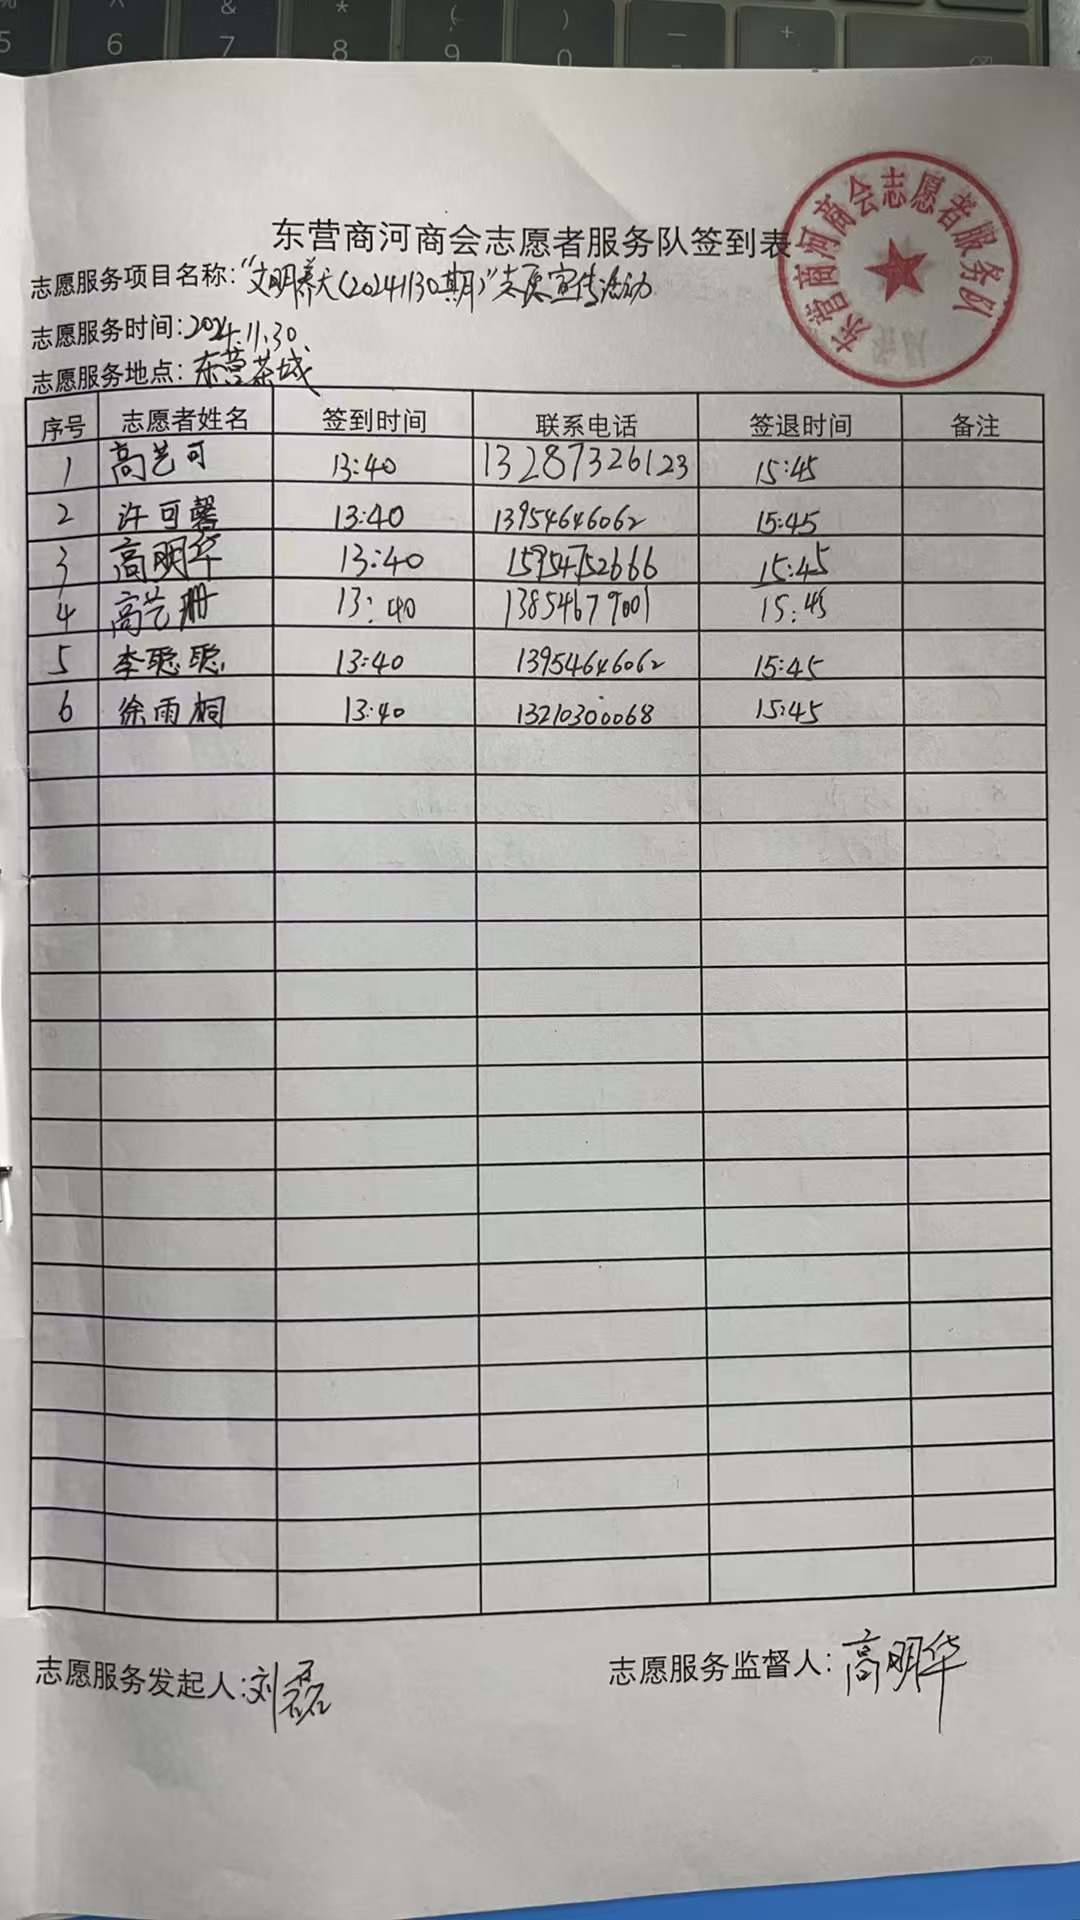 东营商河商会志愿者服务队签到表
东营商河商会志愿者服务队
志愿服务项目名称:“文明养犬(20241130期)”志愿宣传活动
志愿服务时间:2024.11.30
志愿服务地点:东营茶城
序号 志愿者姓名 签到时间 联系电话 签退时间 备注
1 高艺可 13:40 13287326123 15:45
2 许可馨 13:40 13954646062 15:45
3 高明华 13:40 15954752666 15:45
4 高艺珊 13:40 13854679001 15:45
5 李聪聪 13:40 13954646062 15:45
6 徐雨桐 13:40 13210300068 15:45
志愿服务发起人:刘磊 志愿服务监督人:高明华